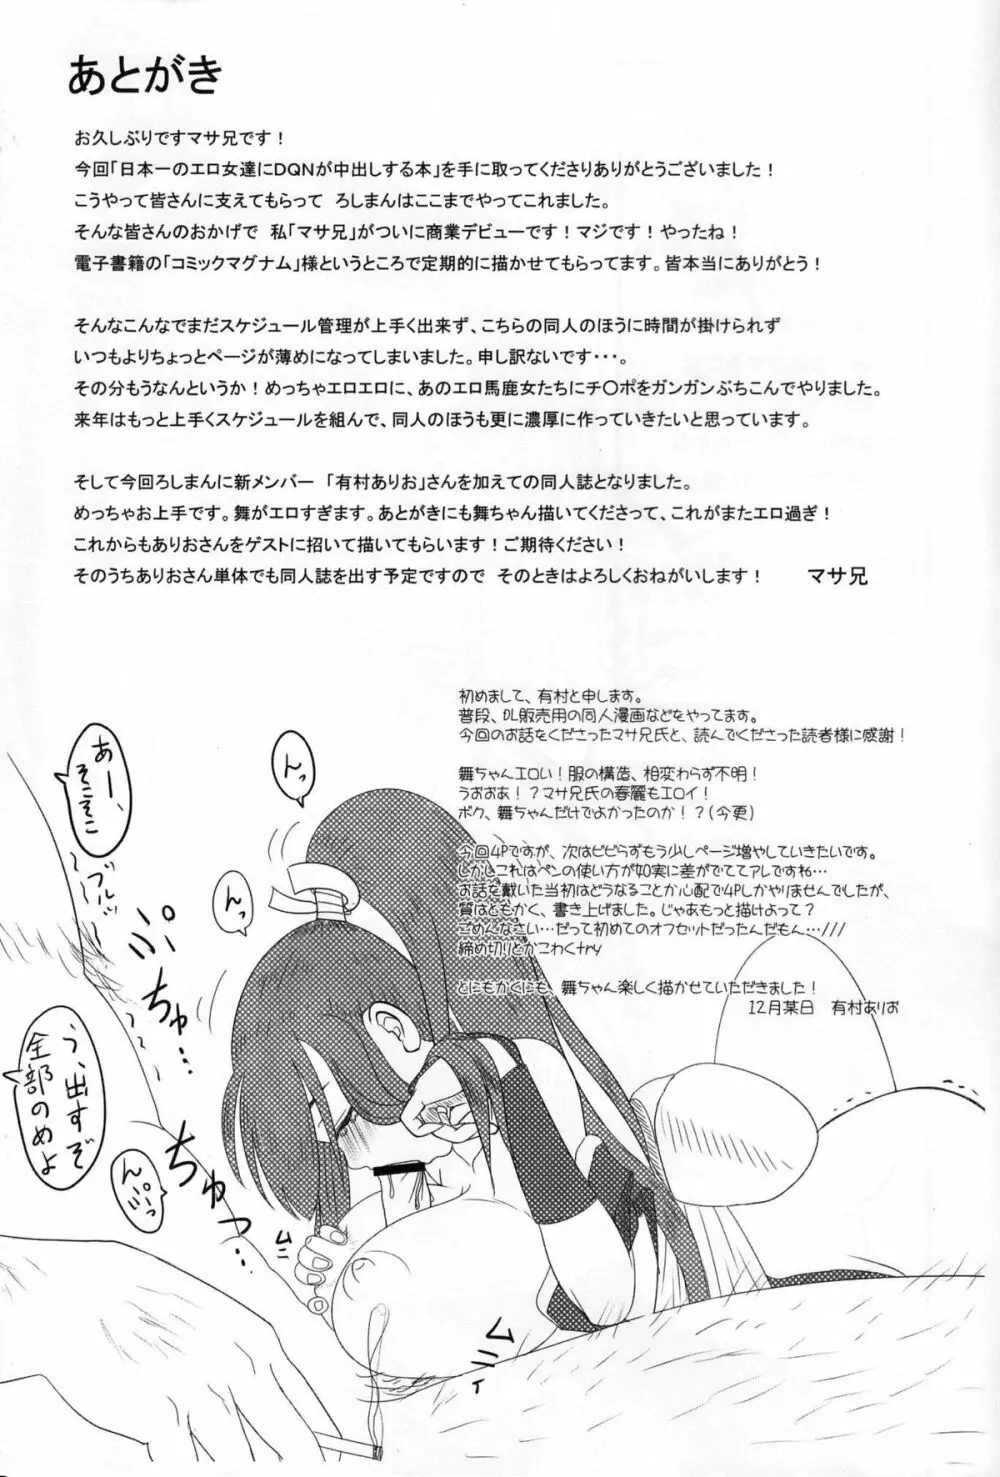 あとがき
お久しぶりですマサ兄です！
今回「日本一のエロ女達にDQNが中出しする本」を手に取ってくださりありがとうございました！
こうやって皆さんに支えてもらって　ろしまんはここまでやってこれました。
そんな皆さんのおかげで　私「マサ兄」がついに商業デビューです！マジです！やったね！
電子書籍の「コミックマグナム」様というところで定期的に描かせてもらってます。皆本当にありがとう！
そんなこんなでまだスケジュール管理が上手く出来ず、こちらの同人のほうに時間が掛けられず
いつもよりちょっとページが薄めになってしまいました。申し訳ないです・・・。
その分もうなんというか！めっちゃエロエロに、あのエロ馬鹿女たちにチ〇ポをガンガンぶちこんでやりました。
来年はもっと上手くスケジュールを組んで、同人のほうも更に濃厚に作っていきたいと思っています。
そして今回ろしまんに新メンバー　「有村ありお」さんを加えての同人誌となりました。
めっちゃお上手です。舞がエロすぎます。あとがきにも舞ちゃん描いてくださって、これがまたエロ過ぎ！
これからもありおさんをゲストに招いて描いてもらいます！ご期待ください！
そのうちありおさん単体でも同人誌を出す予定ですので　そのときはよろしくおねがいします！　　マサ兄
初めまして、有村と申します。
普段、DL販売用の同人漫画などをやってます。
今回のお話をくださったマサ兄氏と、読んでくださった読者様に感謝！
舞ちゃんエロい！服の構造、相変わらず不明！
うおおあ！？マサ兄氏の春麗もエロイ！
ボク、舞ちゃんだけでよかったのか！？（今更）
今回4Pですが、次はビビらずもう少しページ増やしていきたいです。
しかしこれはペンの使い方が如実に差がでててアレですね…
お話を戴いた当初はどうなることか心配で4Pしかやりませんでしたが、
質はともかく、書き上げました。じゃあもっと描けよって？
ごめんなさい…だって初めてのオフセットだったんだもん…///
締め切りとかこわくtry
とにもかくにも、舞ちゃん楽しく描かせていただきました！
12月某日　有村ありお
あー、
そこそこ
ブルッ
んっ
んっ
ぷっ
ちゅ…
う、出すぞ
全部のめよ
ちゅっ…
ムニ
ムニィ